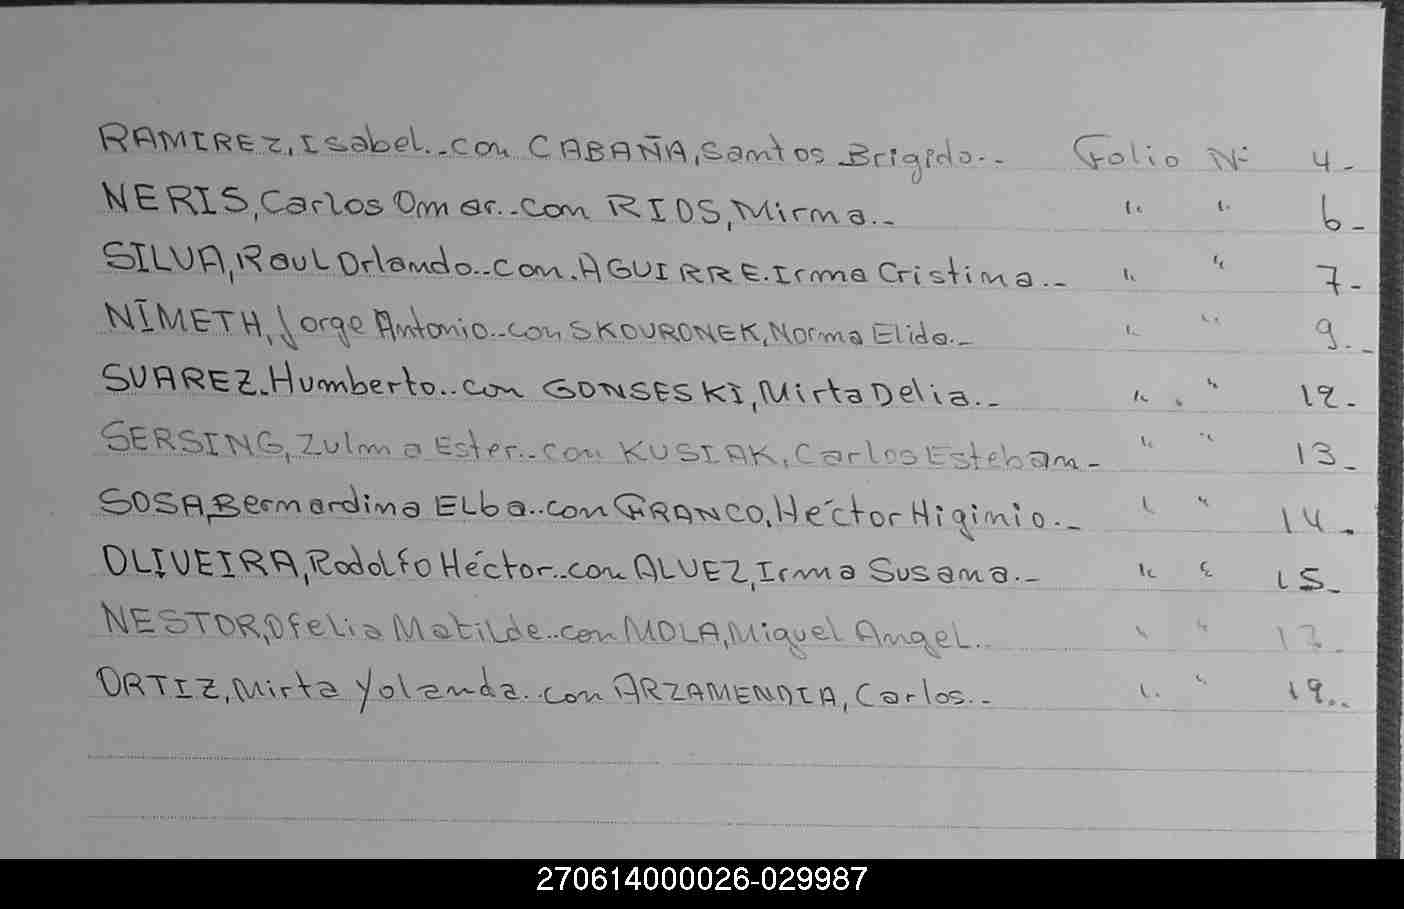 RAMIREZ, Isabel..con CABAÑA, Santos Brigido.. Folio Nº 4.-
NERIS, Carlos Omar..con RIOS, Mirma.. " " 6.-
SILVA, Raul Orlando..con. AGUIRRE. Irma Cristina.. " " 7.-
NIMETH, Jorge Antonio..con SKOURONEK, Norma Elida.. " " 9.-
SUAREZ. Humberto..con GONSESKI, Mirta Delia.. " " 12.-
SERSING, Zulma Ester..con KUSIAK, Carlos Esteban- " " 13.-
SOSA, Bernardina ELba..con FRANCO, Héctor Higinio.. " " 14.-
OLIVEIRA, Rodolfo Héctor..con ALVEZ, Irma Susana.. " " 15.-
NESTOR, Ofelia Matilde..con MOLA, Miguel Angel.. " "
ORTIZ, Mirta Yolanda..con ARZAMENDIA, Carlos.. " " 19..
270614000026-029987